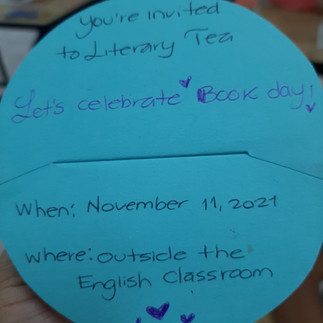 You're invited
to Literary Tea
Let's celebrate Book day!
When: November 11, 2021
where: outside the
English Classroom